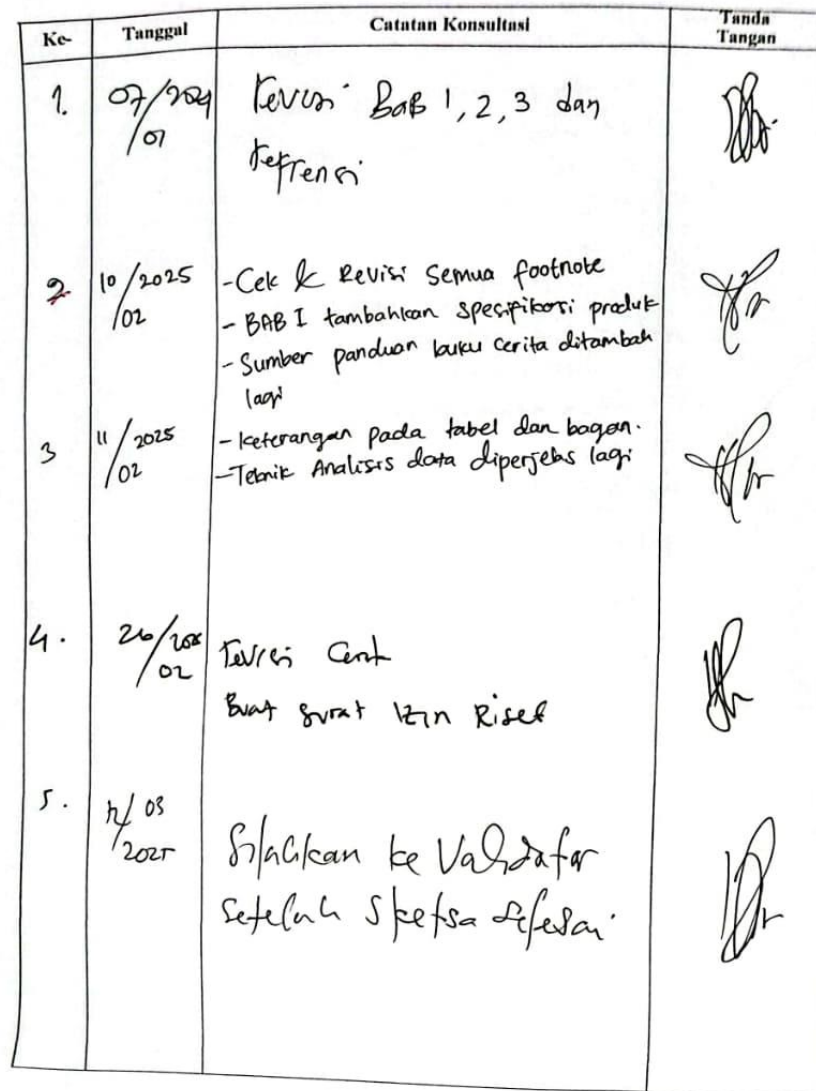 Ke- Tanggal Catatan Konsultasi Tanda Tangan
1. 07/01 Revisi BaB 1, 2, 3 dan
Refrensi
2 10/02/2025 -Cek & Revisi Semua footnote
- BAB I tambahkan spesifikasi produk
- Sumber panduan buku cerita ditambah
lagi
3 11/02/2025 - keterangan pada tabel dan bagan.
-Teknik Analisis data diperjelas lagi
4. 26/02 Revisi
Buat surat Izin Riset
5. 03/2025 Silahkan ke Validator
Setelah Sketsa selesai